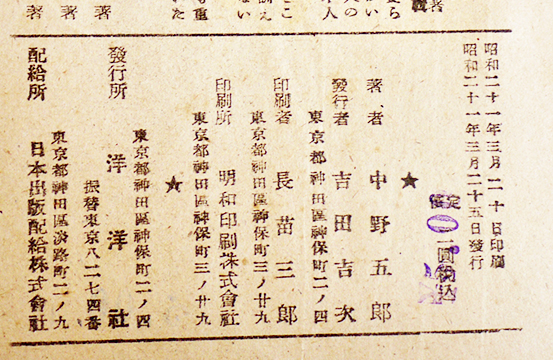 昭和二十一年三月二十日印刷
昭和二十一年三月二十五日發行
定
二圓税込
★
著者 中野五郎
發行者 吉田吉次
東京都神田區神保町二ノ四
印刷者 長苗三郎
東京都神田區神保町三ノ廿九
印刷所 明和印刷株式會社
東京都神田區神保町三ノ廿九
★
發行所 洋洋社
東京都神田區神保町二ノ四
振替東京八二七四番
配給所 日本出版配給株式會社
東京都神田區淡路町二ノ九